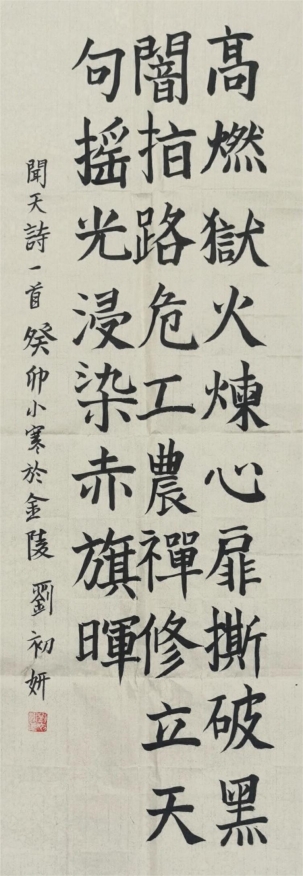 高燃獄火煉心扉撕破黑
闇指路危工農禪修立天
句摇光浸染赤旗暉
聞天詩一首 癸卯小寒於金陵 劉初妍